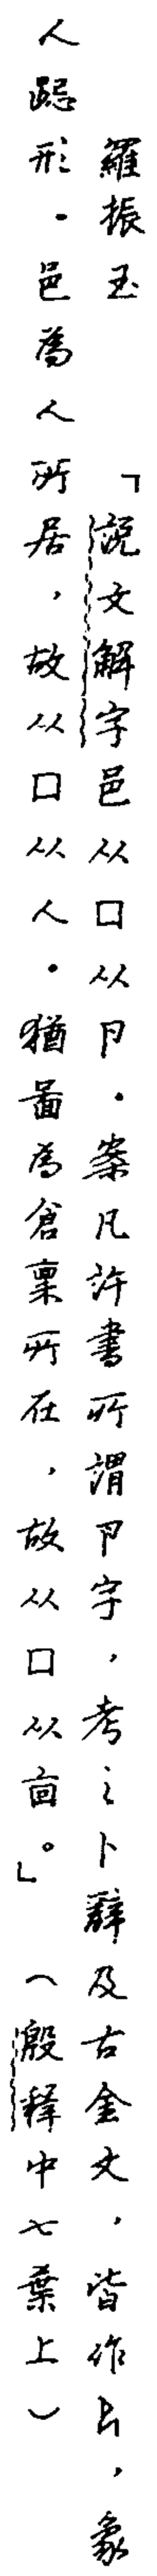 羅振玉　「說文解字邑从囗从卪．案凡許書所謂卪字，考之卜辭及古金文，皆作㔾，象
人跽形．邑為人所居，故从囗从人．猶啚為倉稟所在，故从囗从㐭。」（殷釋中七葉上）